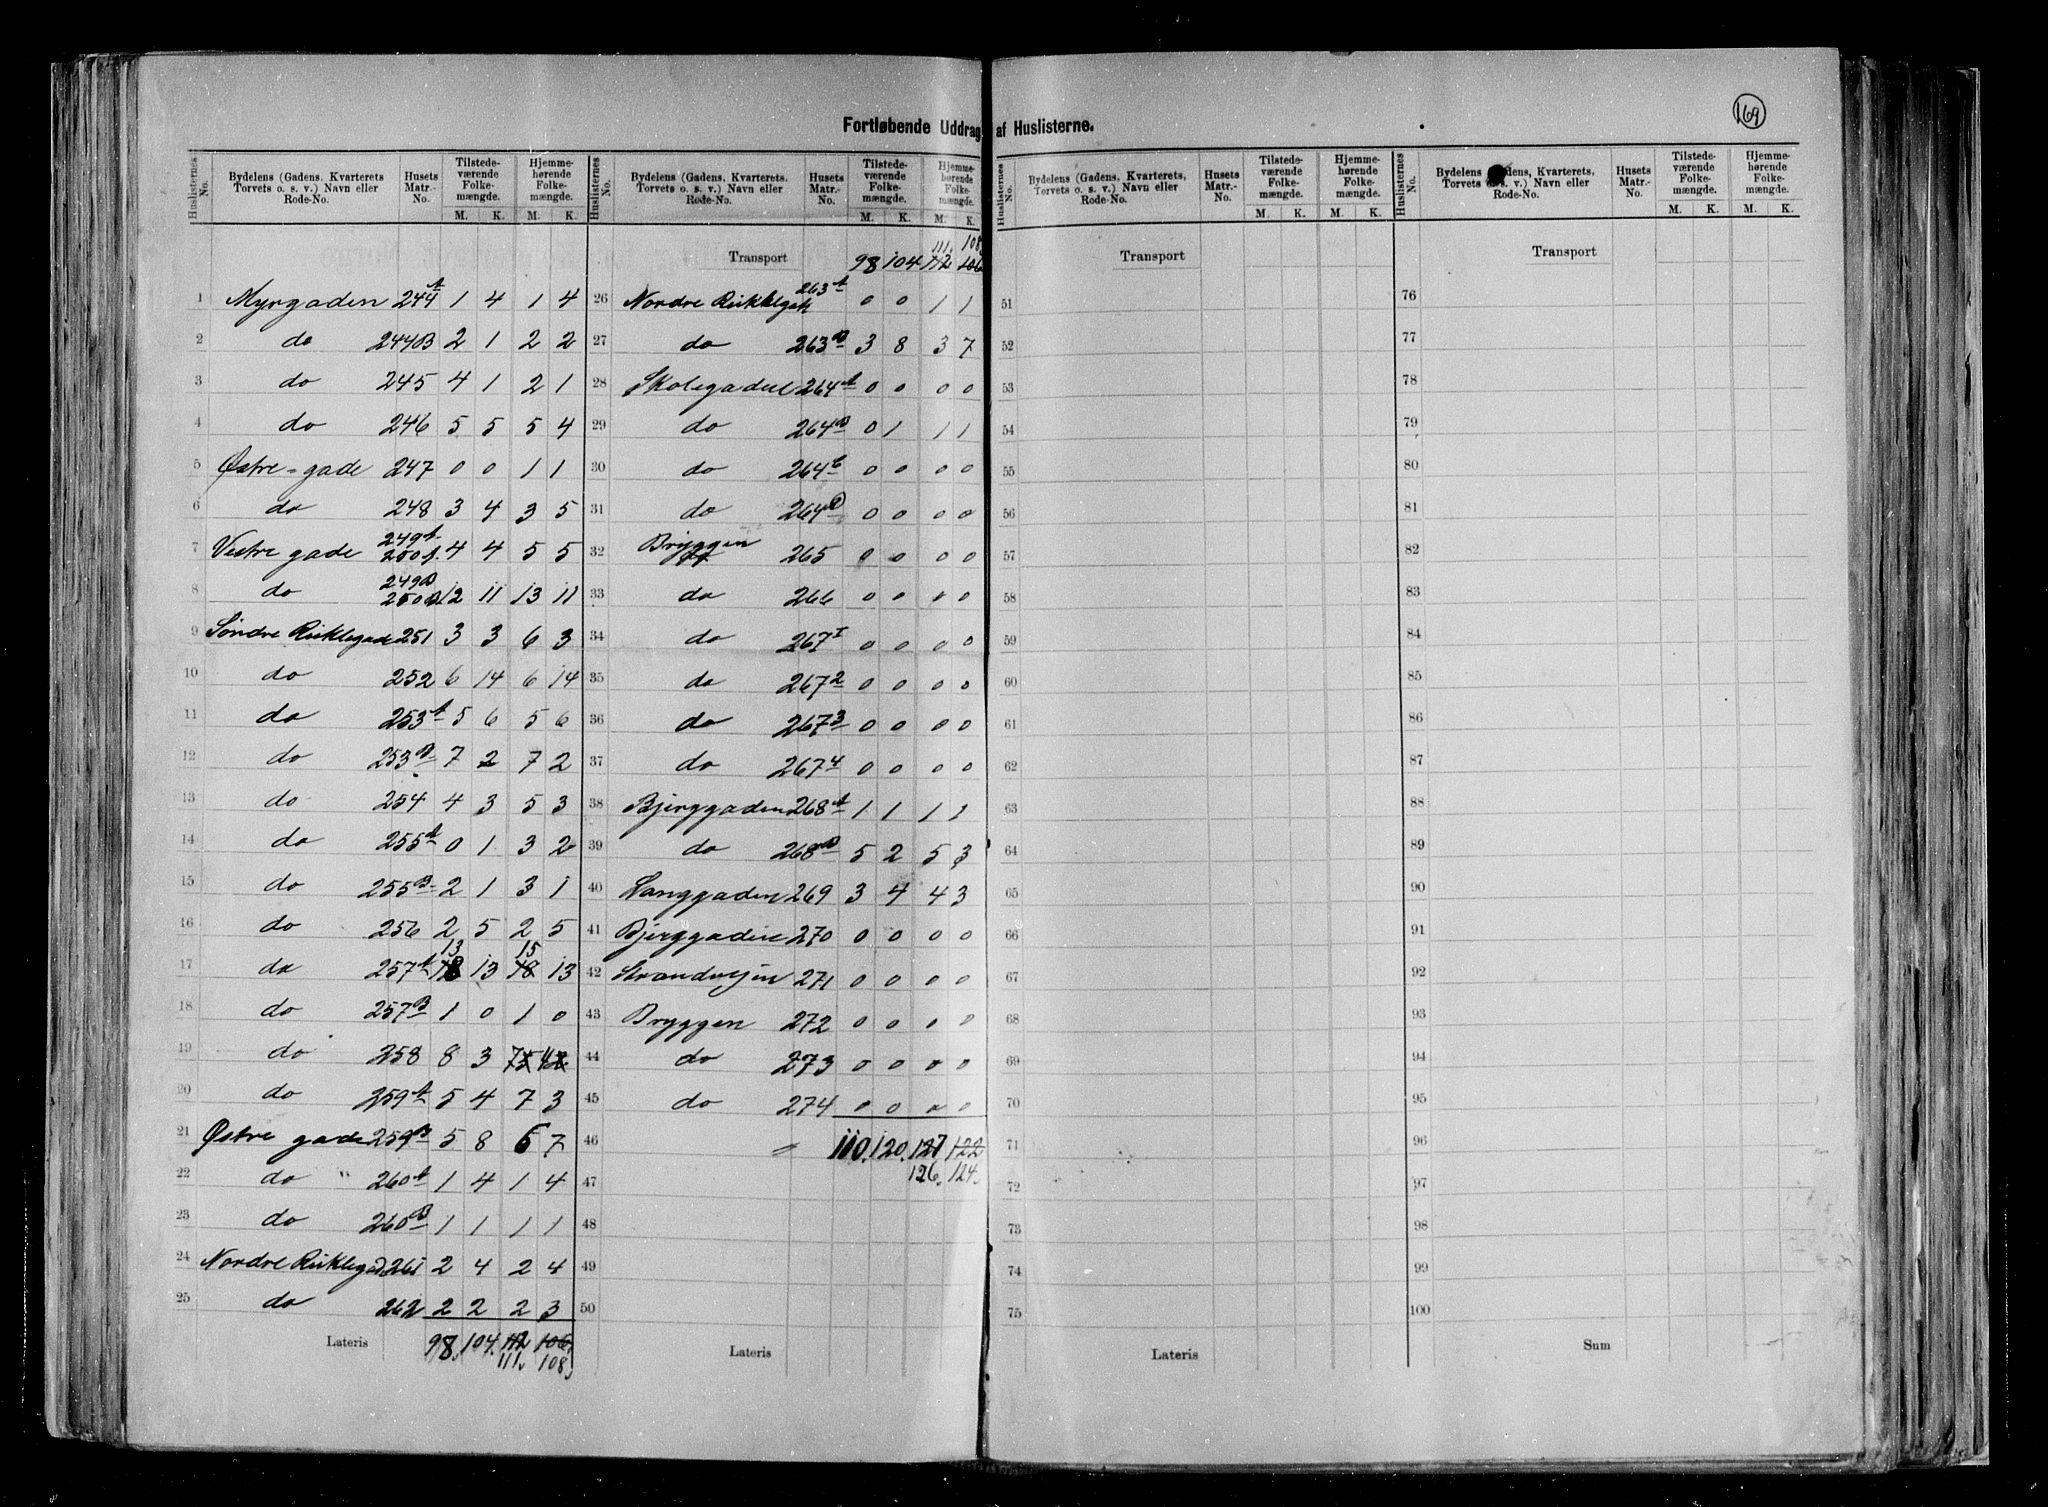 169
Fortløbende Uddrag af Huslisterne.
Huslisternes No. | Bydelens (Gadens, Kvarterets, Torvets o. s. v.) Navn eller Rode-No. | Husets Matr.-No. | Tilstedeværende Folkemængde. M. K. | Hjemmehørende Folkemængde. M. K.
1 Myrgaden 244A 1 4 1 4
2 do 244B 2 1 2 2
3 do 245 4 1 2 1
4 do 246 5 5 5 4
5 Østre-gade 247 0 0 1 1
6 do 248 3 4 3 5
7 Vestre gade 249A 250A 4 4 5 5
8 do 249B 250B 12 11 13 11
9 Søndre Ricklegade 251 3 3 6 3
10 do 252 6 14 6 14
11 do 253A 5 6 5 6
12 do 253B 7 2 7 2
13 do 254 4 3 5 3
14 do 255A 0 1 3 2
15 do 255B 2 1 3 1
16 do 256 2 5 2 5
17 do 257A 13 18 13 15 18 13
18 do 257B 1 0 1 0
19 do 258 8 3
20 do 259A 5 4 7 3
21 Østre gade 259B 5 8 6 7
22 do " 260A 1 4 1 4
23 do 260B 1 1 1 1
24 Nordre Ricklegad 261 2 4 2 4
25 do 262 2 2 2 3
Lateris 98. 104. 112 106.
111. 108.
Huslisternes No. | Bydelens (Gadens, Kvarterets, Torvets o. s. v.) Navn eller Rode-No. | Husets Matr.-No. | Tilstedeværende Folkemængde. M. K. | Hjemmehørende Folkemængde. M. K.
111. 108.
Transport 98 104 112 106
26 Nordre 263A 0 0 1 1
27 do 263B 3 8 3 7
28 Skolegaden 264A 0 0 0 0
29 do 264B 0 1 1 1
30 do 264C 0 0 0 0
31 do 264D 0 0 0 0
32 Bryggen 265 0 0 0 0
33 do 266 0 0 0 0
34 do 267I 0 0 0 0
35 do 267 2 0 0 0 0
36 do 267 3 0 0 0 0
37 do 267 4 0 0 0 0
38 Bjerggaden 268A 1 1 1 1
39 do 268B 5 2 5 3
40 Langgaden 269 3 4 4 3
41 Bjerggaden 270 0 0 0 0
42 Strandvejen 271 0 0 0 0
43 Bryggen 272 0 0 0 0
44 do 273 0 0 0 0
45 do 274 0 0 0 0
46 110. 120. 127 122
126. 124.
47
48
49
50
Lateris
Huslisternes No. | Bydelens (Gadens, Kvarterets, Torvets o. s. v.) Navn eller Rode-No. | Husets Matr.-No. | Tilstedeværende Folkemængde. M. K. | Hjemmehørende Folkemængde. M. K.
Transport
51
52
53
54
55
56
57
58
59
60
61
62
63
64
65
66
67
68
69
70
71
72
73
74
75
Lateris
Huslisternes No. | Bydelens (Gadens, Kvarterets, Torvets o. s. v.) Navn eller Rode-No. | Husets Matr.-No. | Tilstedeværende Folkemængde. M. K. | Hjemmehørende Folkemængde. M. K.
Transport
76
77
78
79
80
81
82
83
84
85
86
87
88
89
90
91
92
93
94
95
96
97
98
99
100
Sum